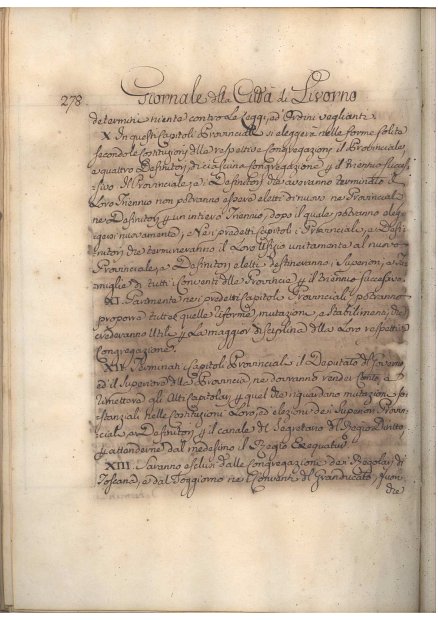 278. Giornale della Città di Livorno
determini niente contro le Leggi, ad Ordini veglianti.
X. In questi Capitoli Provinciali si eleggerà nelle forme solite
secondo le Costituzioni delle respettive Congregazioni il Provinciale
e quattro Definitori di ciascuna Congregazione p il Triennio succes-
sivo. Il Provinciale, e Definitori che avranno terminato il
Loro Triennio non potranno essere eletti di nuovo ne Provinciale
ne Definitori p un intero Triennio, dopo il quale potranno eleg-
gersi nuovamente, e Nei predetti Capitoli i Provinciali, e Defi-
nitori che termineranno il Loro Ufizio unitamente al nuovo
Provinciale, e Definitori eletti destineranno i Superiori, e Fa-
miglie di tutti i Conventi delle Provincie p il Triennio successivo.
XI. Parimente nei predetti Capitoli Provinciali potranno
proporre tutte quelle riforme, mutazioni, e Stabilimenti, che
crederanno Utili p La maggior disciplina della Loro respettiva
Congregazione.
XII. Terminati i Capitoli Provinciali il Deputato del Governo
ed il Superiore della Provincia ne dovranno render Conto, e
rimettere gli Atti Capitolari p quel che riguardano mutazioni so-
stanziali nelle Costituzioni Loro, ed elezione dei Superiori Provin-
ciali, e Definitori p il canale del Segretario del Regio Diritto
p attenderne dal medesimo il Regio Exequatur.
XIII. Saranno esclusi dalle Congregazioni dei Regolari di
Toscana, e dal Soggiorno nei Conventi del Granducato quan-
dre